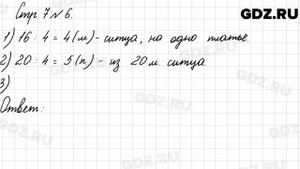 GDZ.RU
Стр. 7 № 6.
1) 16 : 4 = 4 (м) - ситца, на одно платье.
2) 20 : 4 = 5 (п) - из 20 м. ситца.
3)
Ответ:
GDZ.RU